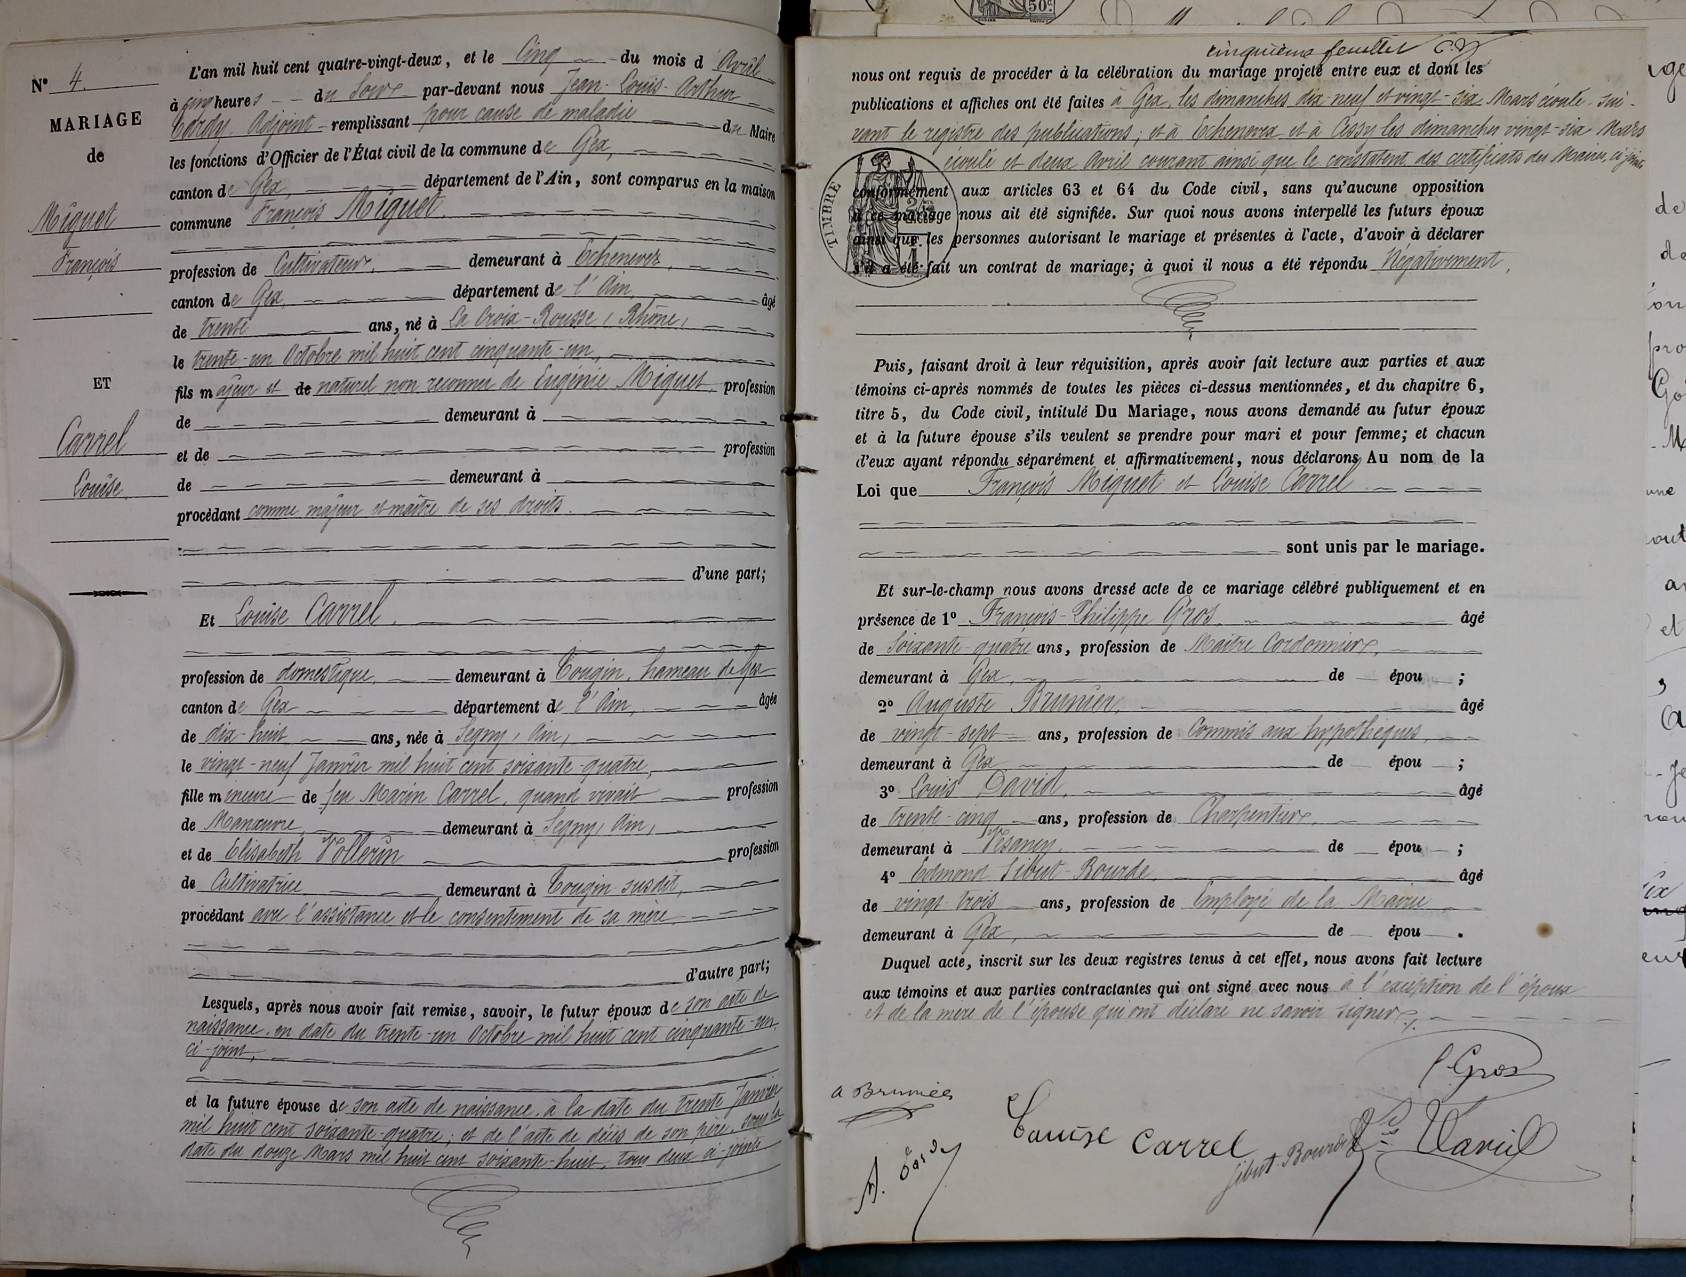 N° 4.
MARIAGE
de
Miguet
François
ET
Carrel
Louise
L'an mil huit cent quatre-vingt-deux, et le Cinq du mois d'Avril
à cinq heures du Soir par-devant nous Jean-Louis-Arthur
Adjoint remplissant pour cause de maladie du Maire
les fonctions d'Officier de l'État civil de la commune de Gex,
canton de Gex, département de l'Ain, sont comparus en la maison
commune François Miguet.
profession de Cultivateur, demeurant à Echenevex,
canton de Gex, département de l'Ain, âgé
de trente ans, né à La Croix-Rousse, (Rhône)
le trente-un Octobre mil huit cent cinquante-un,
fils majeur et de naturel non reconnu de Eugénie Miguet, profession
de demeurant à
et de profession
de demeurant à
procédant comme majeur et maître de ses droits.
d'une part;
Et Louise Carrel.
profession de domestique, demeurant à Tougin, hameau de Gex
canton de Gex département de l'Ain, âgée
de dix-huit ans, née à Segny, (Ain)
le vingt-neuf Janvier mil huit cent soixante-quatre,
fille mineure de feu Marin Carrel, quand vivait profession
de Manœuvre, demeurant à Segny, (Ain)
et de Elisabeth Vollerin profession
de Cultivatrice demeurant à Tougin susdit,
procédant avec l'assistance et le consentement de sa mère
d'autre part;
Lesquels, après nous avoir fait remise, savoir, le futur époux de son acte de
naissance, en date du trente-un Octobre mil huit cent cinquante-un,
ci-joint,
et la future épouse de son acte de naissance, à la date du trente Janvier
mil huit cent soixante-quatre; et de l'acte de décès de son père, sous la
date du douze Mars mil huit cent soixante-huit, tous deux ci-joints
cinquième feuillet
nous ont requis de procéder à la célébration du mariage projeté entre eux et dont les
publications et affiches ont été faites à Gex, les dimanches dix-neuf et vingt-six Mars écoulé, sui-
vant le registre des publications; et à Echenevex et à Cessy les dimanches vingt-six Mars
écoulé et deux Avril courant ainsi que le constatent des certificats des Maires, ci-joints
TIMBRE
conformément aux articles 63 et 64 du Code civil, sans qu'aucune opposition
à ce mariage nous ait été signifiée. Sur quoi nous avons interpellé les futurs époux
ainsi que les personnes autorisant le mariage et présentes à l'acte, d'avoir à déclarer
s'il a été fait un contrat de mariage; à quoi il nous a été répondu Négativement.
Puis, faisant droit à leur réquisition, après avoir fait lecture aux parties et aux
témoins ci-après nommés de toutes les pièces ci-dessus mentionnées, et du chapitre 6,
titre 5, du Code civil, intitulé Du Mariage, nous avons demandé au futur époux
et à la future épouse s'ils veulent se prendre pour mari et pour femme; et chacun
d'eux ayant répondu séparément et affirmativement, nous déclarons Au nom de la
Loi que François Miguet et Louise Carrel
sont unis par le mariage.
Et sur-le-champ nous avons dressé acte de ce mariage célébré publiquement et en
présence de 1° François-Philippe Gros, âgé
de Soixante-quatre ans, profession de Maître Cordonnier,
demeurant à Gex, de épou ;
2° Auguste Brunier, âgé
de vingt-sept ans, profession de Commis aux hypothèques,
demeurant à Gex de épou ;
3° Louis David, âgé
de trente-cinq ans, profession de Charpentier,
demeurant à Vesancy, de épou ;
4° Edmond Sibut-Bourde âgé
de vingt trois ans, profession de Employé de la Mairie
demeurant à Gex, de épou .
Duquel acte, inscrit sur les deux registres tenus à cet effet, nous avons fait lecture
aux témoins et aux parties contractantes qui ont signé avec nous à l'exception de l'époux
et de la mère de l'épouse qui ont déclaré ne savoir signer
Gros
A Brunier
Louise Carrel
Sibut-Bourde
David